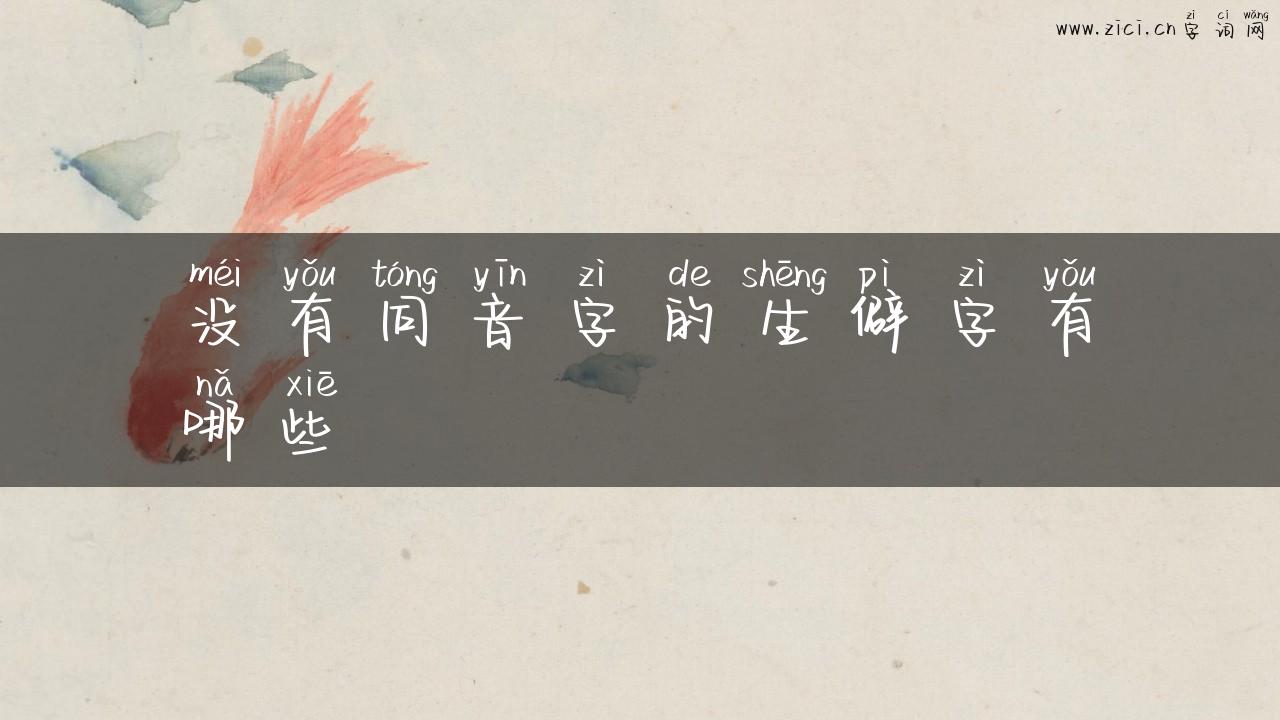 zì cí wǎng
www.zici.cn字词网
méi yǒu tóng yīn zì de shēng pì zì yǒu
没有同音字的生僻字有
nǎ xiē
哪些